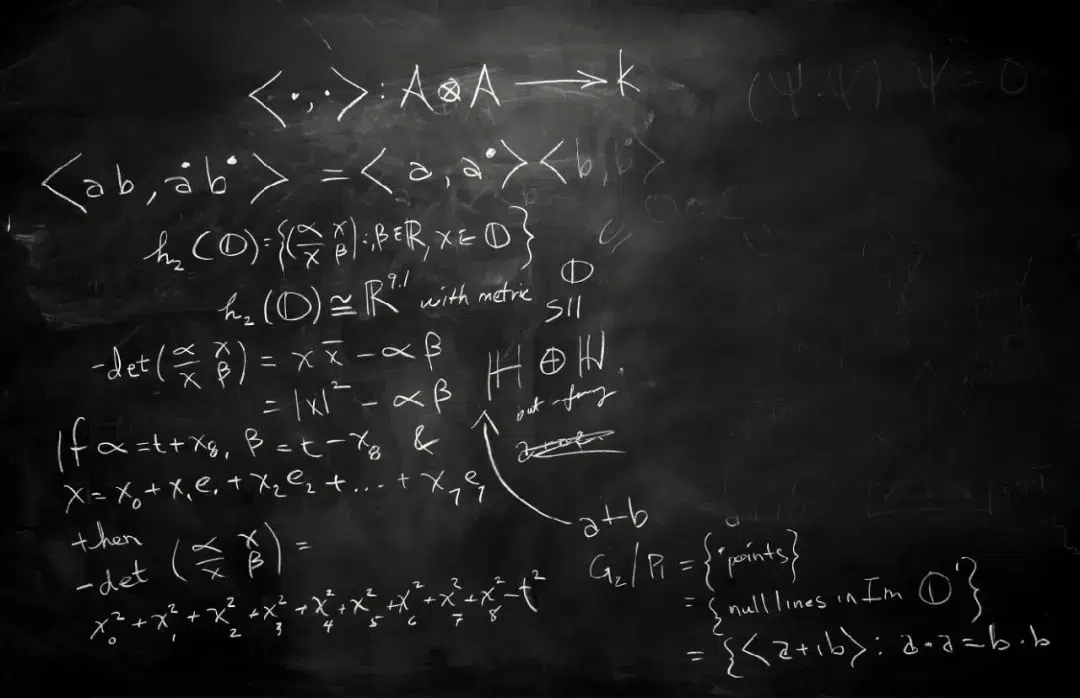 <·,·>: A⊗A → k
(ψ·ψ) ψ = 0
<ab, a˙b˙> = <a, a˙><b, b˙>
h₂(𝕆) = {(α x / x̄ β) : , β ∈ ℝ, x ∈ 𝕆}
h₂(𝕆) ≅ ℝ⁹·¹ with metric
𝕆
SII
ℍ ⊕ ℍ,
-det(α x / x̄ β) = x x̄ - αβ
= |x|² - αβ
but
If α = t + x₈, β = t - x₈ &
x = x₀ + x₁e₁ + x₂e₂ + ... + x₇e₇
a+b
then
-det (α x / x̄ β) =
x₀² + x₁² + x₂² + x₃² + x₄² + x₅² + x₆² + x₇² + x₈² - t²
G₂/P₁ = {points}
= {null lines in Im 𝕆'}
= {<a+ıb>: a·a = b·b